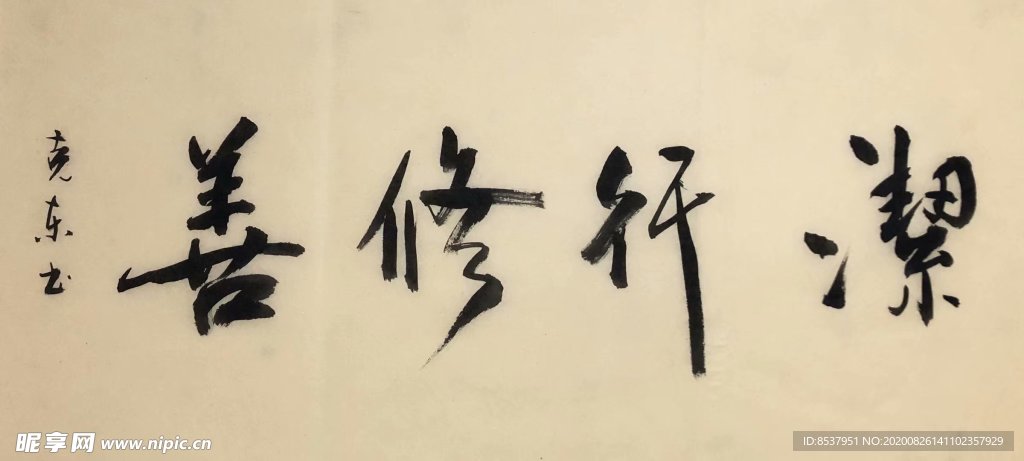 潔行修善
克东书
昵享网 www.nipic.cn
ID:8537951 NO:20200826141102357929